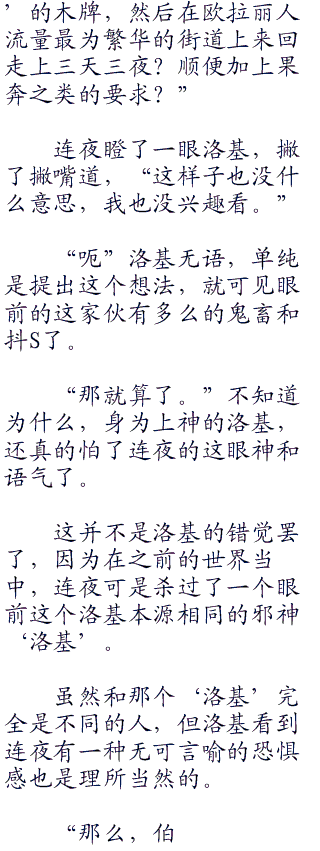 ’的木牌，然后在欧拉丽人
流量最为繁华的街道上来回
走上三天三夜？顺便加上果
奔之类的要求？”
连夜瞪了一眼洛基，撇
了撇嘴道，“这样子也没什
么意思，我也没兴趣看。”
“呃”洛基无语，单纯
是提出这个想法，就可见眼
前的这家伙有多么的鬼畜和
抖S了。
“那就算了。”不知道
为什么，身为上神的洛基，
还真的怕了连夜的这眼神和
语气了。
这并不是洛基的错觉罢
了，因为在之前的世界当
中，连夜可是杀过了一个眼
前这个洛基本源相同的邪神
‘洛基’。
虽然和那个‘洛基’完
全是不同的人，但洛基看到
连夜有一种无可言喻的恐惧
感也是理所当然的。
“那么，伯